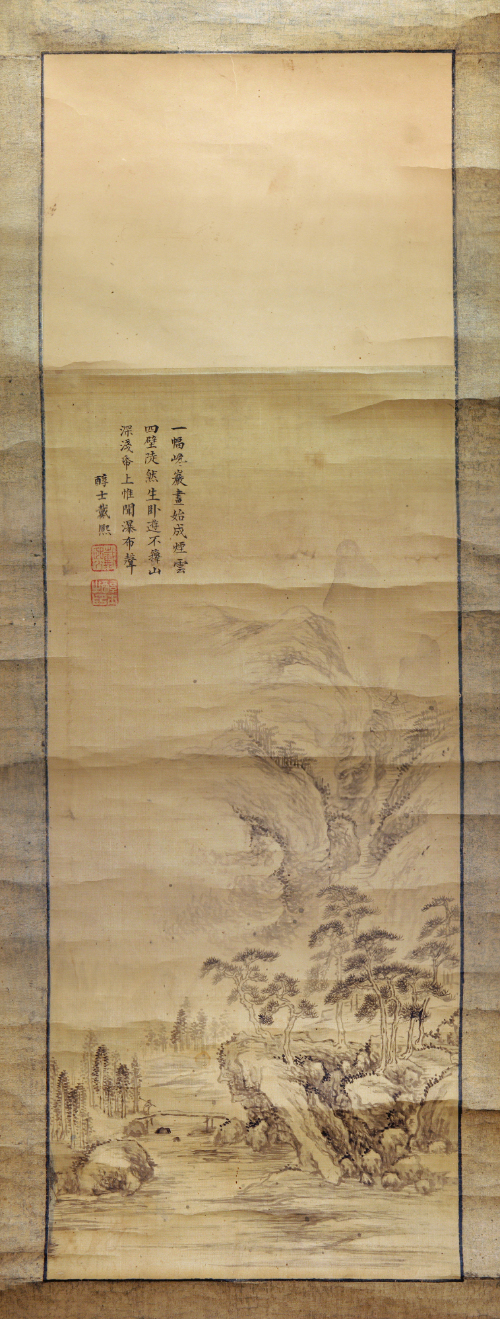 一幅嵯巖畫始成煙雲
四壁陡然生卧遊不辭山
深淺帋上惟聞瀑布聲
醇士戴熙